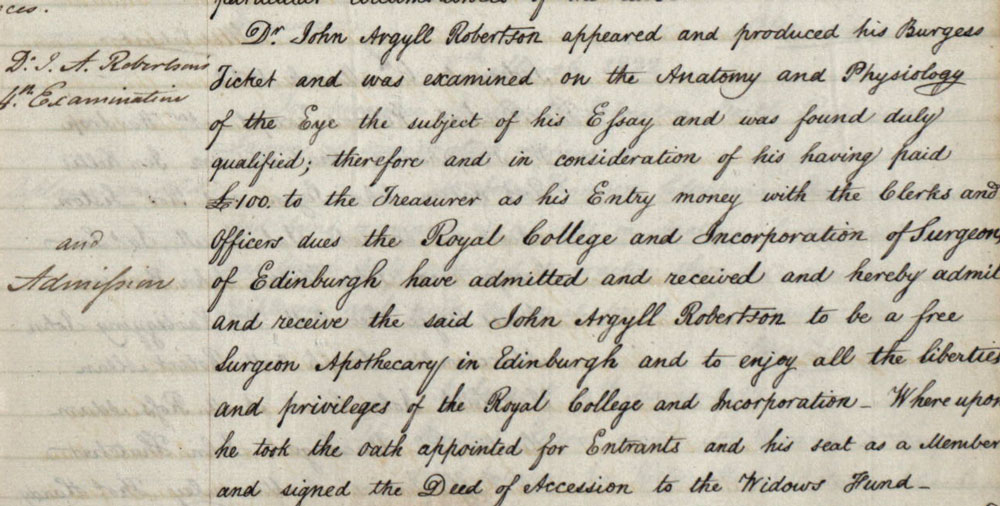 ces.
particular circumstances of the case
Dr. John Argyll Robertson appeared and produced his Burgess
Dr. J. A. Robertsons
Ticket and was examined on the Anatomy and Physiology
4th. Examination
of the Eye the subject of his Eſsay and was found duly
qualified; therefore and in consideration of his having paid
£100. to the Treasurer as his Entry money with the Clerks and
and
Officers dues the Royal College and Incorporation of Surgeons
Admiſsion
of Edinburgh have admitted and received and hereby admit
and receive the said John Argyll Robertson to be a free
Surgeon Apothecary in Edinburgh and to enjoy all the liberties
and privileges of the Royal College and Incorporation_ Where upon
he took the oath appointed for Entrants and his seat as a Member
and signed the Deed of Accession to the Widows Fund_